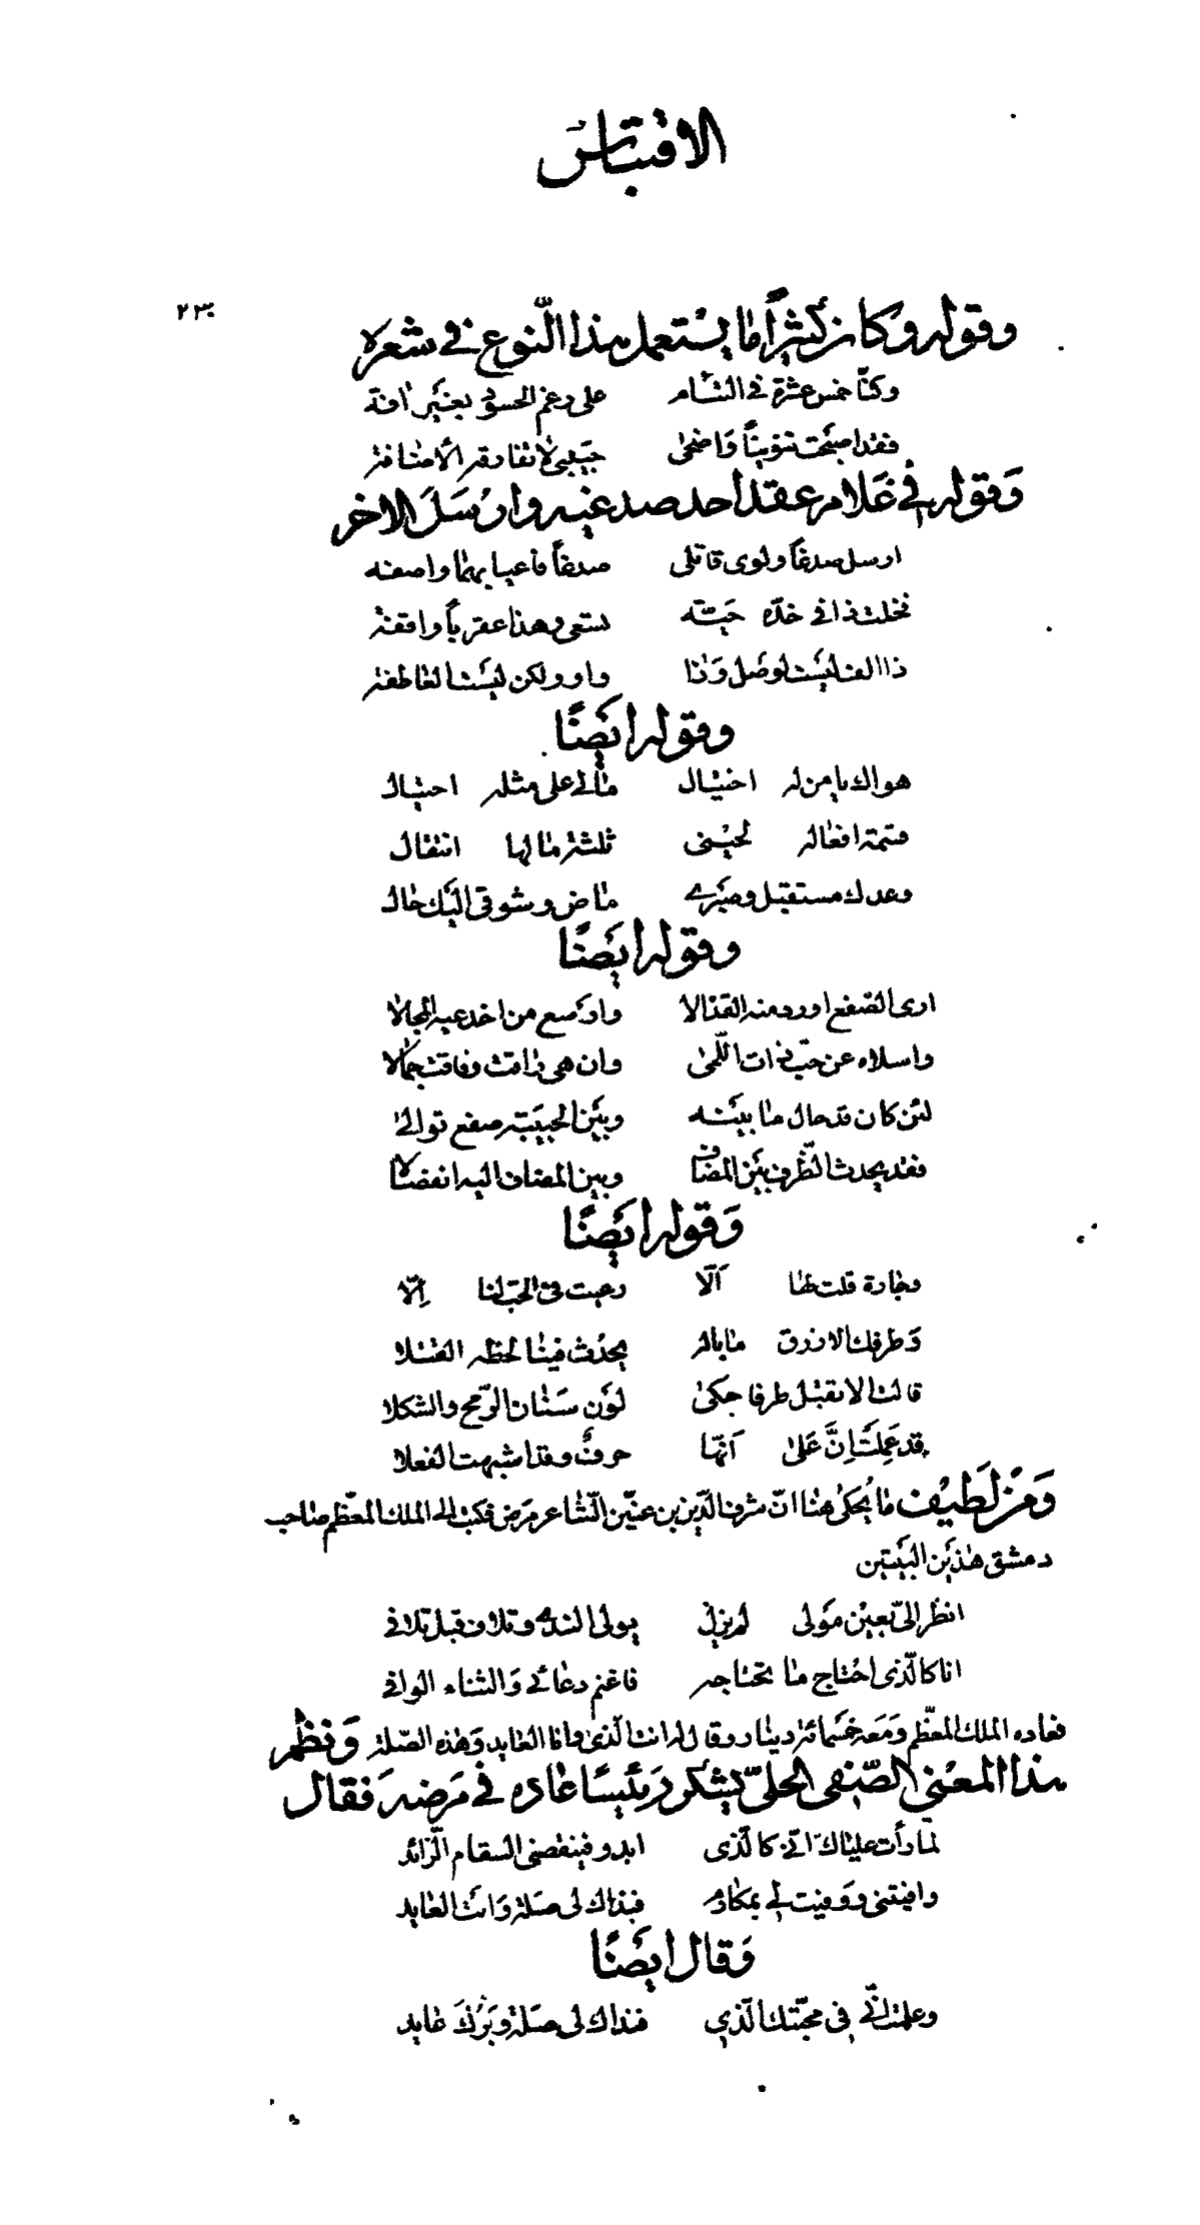 الاقتباس
٢٣٠
وقوله وكان كثيراً ما يستعمل هذا النّوع في شعره
وكنّا خمس عشرة في التئام على رغم الحسود بغير آفة
فقد اصبحت تنويناً واضحى حبيبى لا تفارقه الأضافة
وقوله في غلام عقد احد صدغيه وارسل الاخر
ارسل صدغاً ولوى قاتلى صدغاً فاعيا بهما واصفه
فخلت ذا في خدّه حيّة تسعى وهذا عقرباً واقفة
ذا الف ليست لوصل وذا واو ولكن ليست العاطفة
وقوله ايضًا
هواك يا من له اختيال مالى على مثله احتيال
قسمة افعاله لحينى ثلثة مالها انتقال
وعدك مستقبل وصبرى ماض وشوقى اليك حال
وقوله ايضًا
ارى الصّفع اورد منه القذالا واوسع من اخدعيه المجالا
واسلاه عن حبّ ذات اللّمى وان هى راقت وفاقت جمالا
لئن كان قد حال ما بينه وبين الحبيبة صفع توالى
فقد يحدث الظّرف بين المضاف وبين المضاف اليه انفصالا
وقوله ايضًا
وجارة قلت لها ألّا رعيت في الحبّ لنا إلّا
وطرفك الازرق ما باله يحدث فينا لحظه القتلا
قالت الا تقبل طرفا حكى لون سنان الرّمح والشكلا
قد عملت إنّ على انّها حرفٌ وقد اشبهت الفعلا
ومن لطيف ما يُحكى هنا انّ شرف الدّين بن عنين الشّاعر مرض فكتب الى الملك المعظّم صاحب
دمشق هذين البيتين
انظر الىّ بعين مولى لم يزل يولى الندى وتلاف قبل تلافى
انا كالّذى احتاج ما تحتاجه فاغنم دعائى والثناء الوافى
فعاده الملك المعظّم ومعه خمسمائة دينار وقال له انت الّذى وانا العايد وهذه الصّلة ونظم
هذا المعنى الصّفى الحلّىّ يشكر رئيسًا عاده في مرضه فقال
لمّا رأت علياك انّى كالّذى ابدو فينقصنى السقام الزّائد
وافيتنى ووفيت لى بمكارم فنداك لى صلة وانت العايد
وقال ايضًا
وعلمت انّى في محبّتك الّذى فنداك لى صلة وبرّك عايد